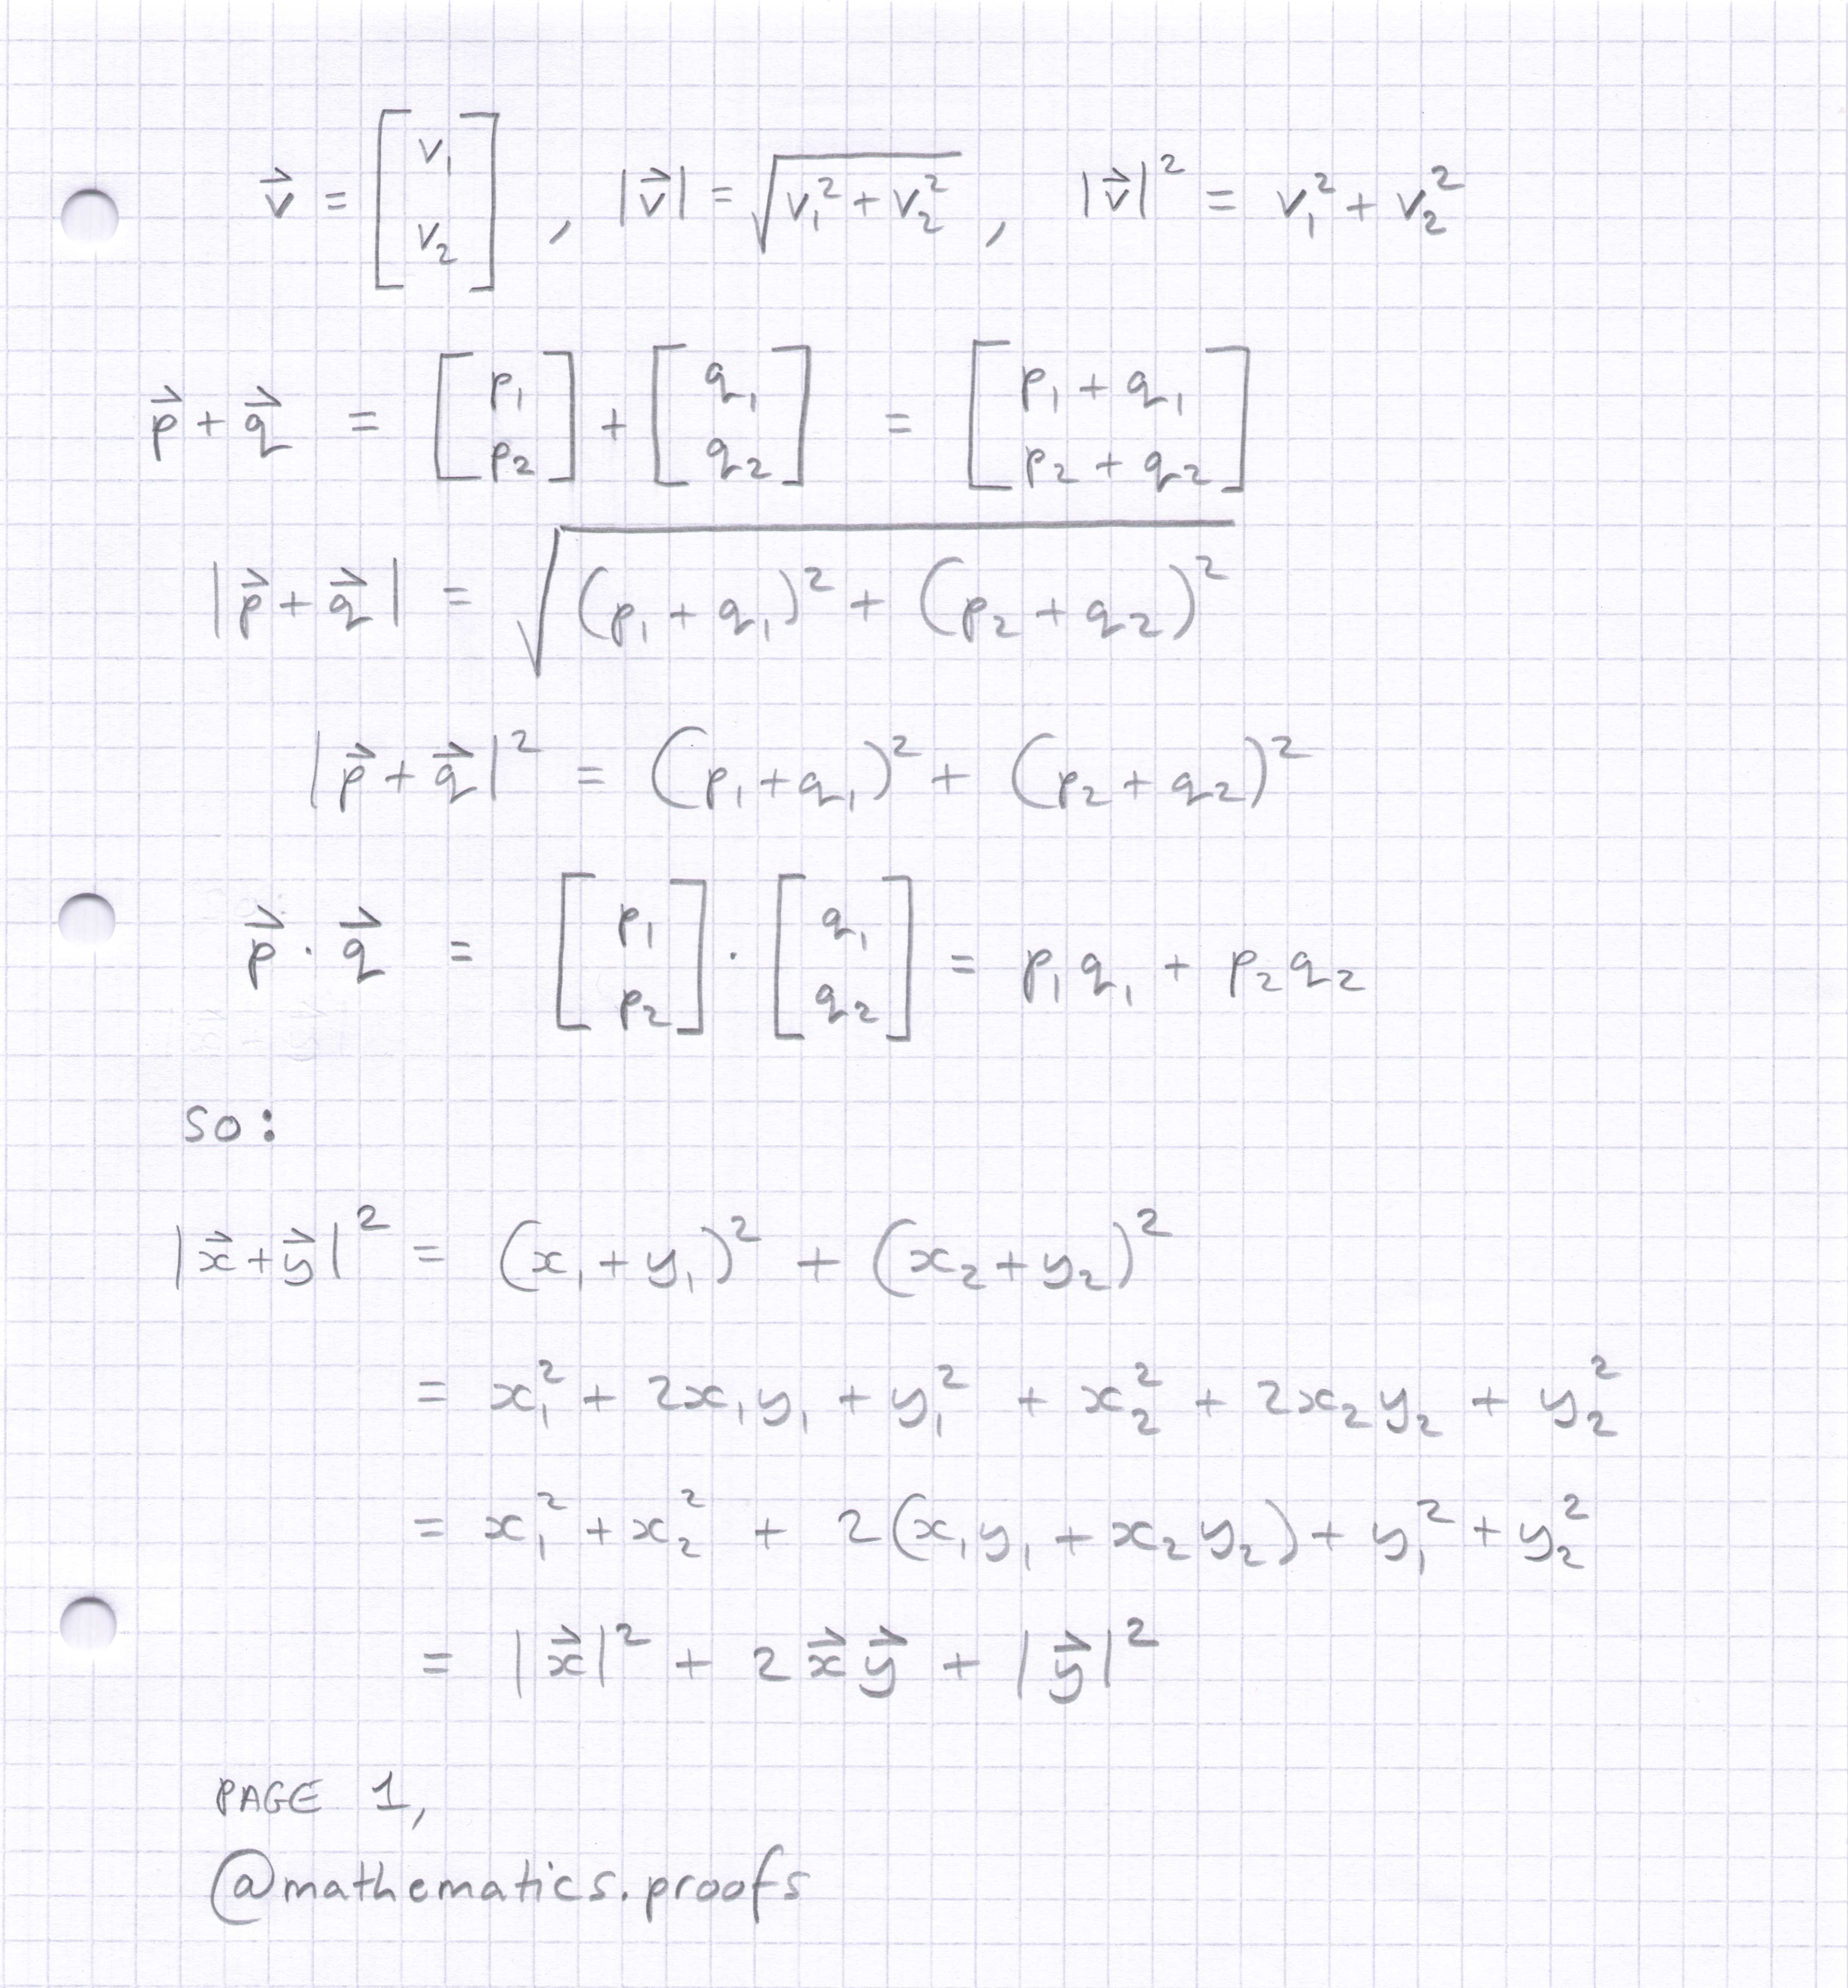 v⃗ = [v₁ v₂], |v⃗| = √(v₁² + v₂²), |v⃗|² = v₁² + v₂²
p⃗ + q⃗ = [p₁ p₂] + [q₁ q₂] = [p₁ + q₁ p₂ + q₂]
|p⃗ + q⃗| = √((p₁ + q₁)² + (p₂ + q₂)²)
|p⃗ + q⃗|² = (p₁ + q₁)² + (p₂ + q₂)²
p⃗ · q⃗ = [p₁ p₂] · [q₁ q₂] = p₁q₁ + p₂q₂
so:
|x⃗ + y⃗|² = (x₁ + y₁)² + (x₂ + y₂)²
= x₁² + 2x₁y₁ + y₁² + x₂² + 2x₂y₂ + y₂²
= x₁² + x₂² + 2(x₁y₁ + x₂y₂) + y₁² + y₂²
= |x⃗|² + 2x⃗y⃗ + |y⃗|²
PAGE 1,
@mathematics.proofs